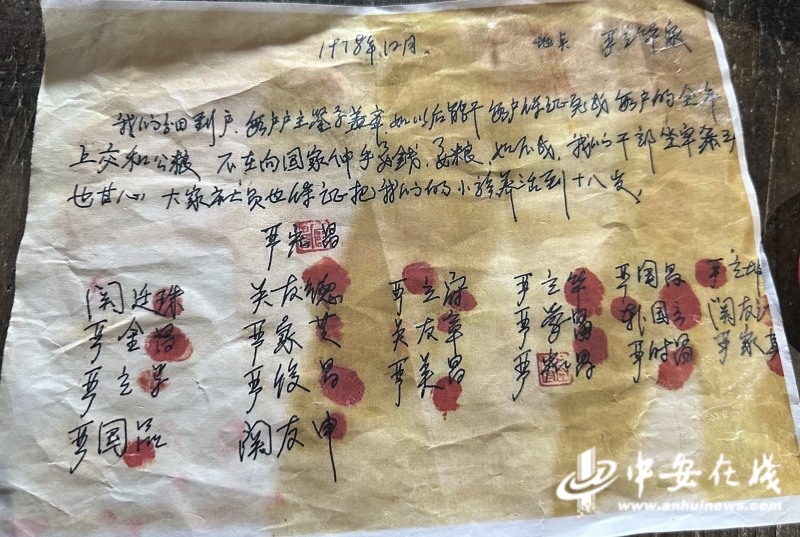 1978年12月. 地点 严立华家
我们分田到户,每户户主签字盖章,如以后能干 每户保证完成每户的全年
上交和公粮 不在向国家伸手要錢,要粮,如不成,我们干部坐牢杀头
也甘心,大家社员也保证把我们的小孩养活到十八岁,
严宏昌
关廷珠 关友德 严立符 严立华 严国昌 严立坤
严金昌 严家芝 关友章 严学昌 韩国云 关友江
严立学 严俊昌 严美昌 严昌 严昌 严家
严国品 关友申
中安在线
www.anhuinews.com